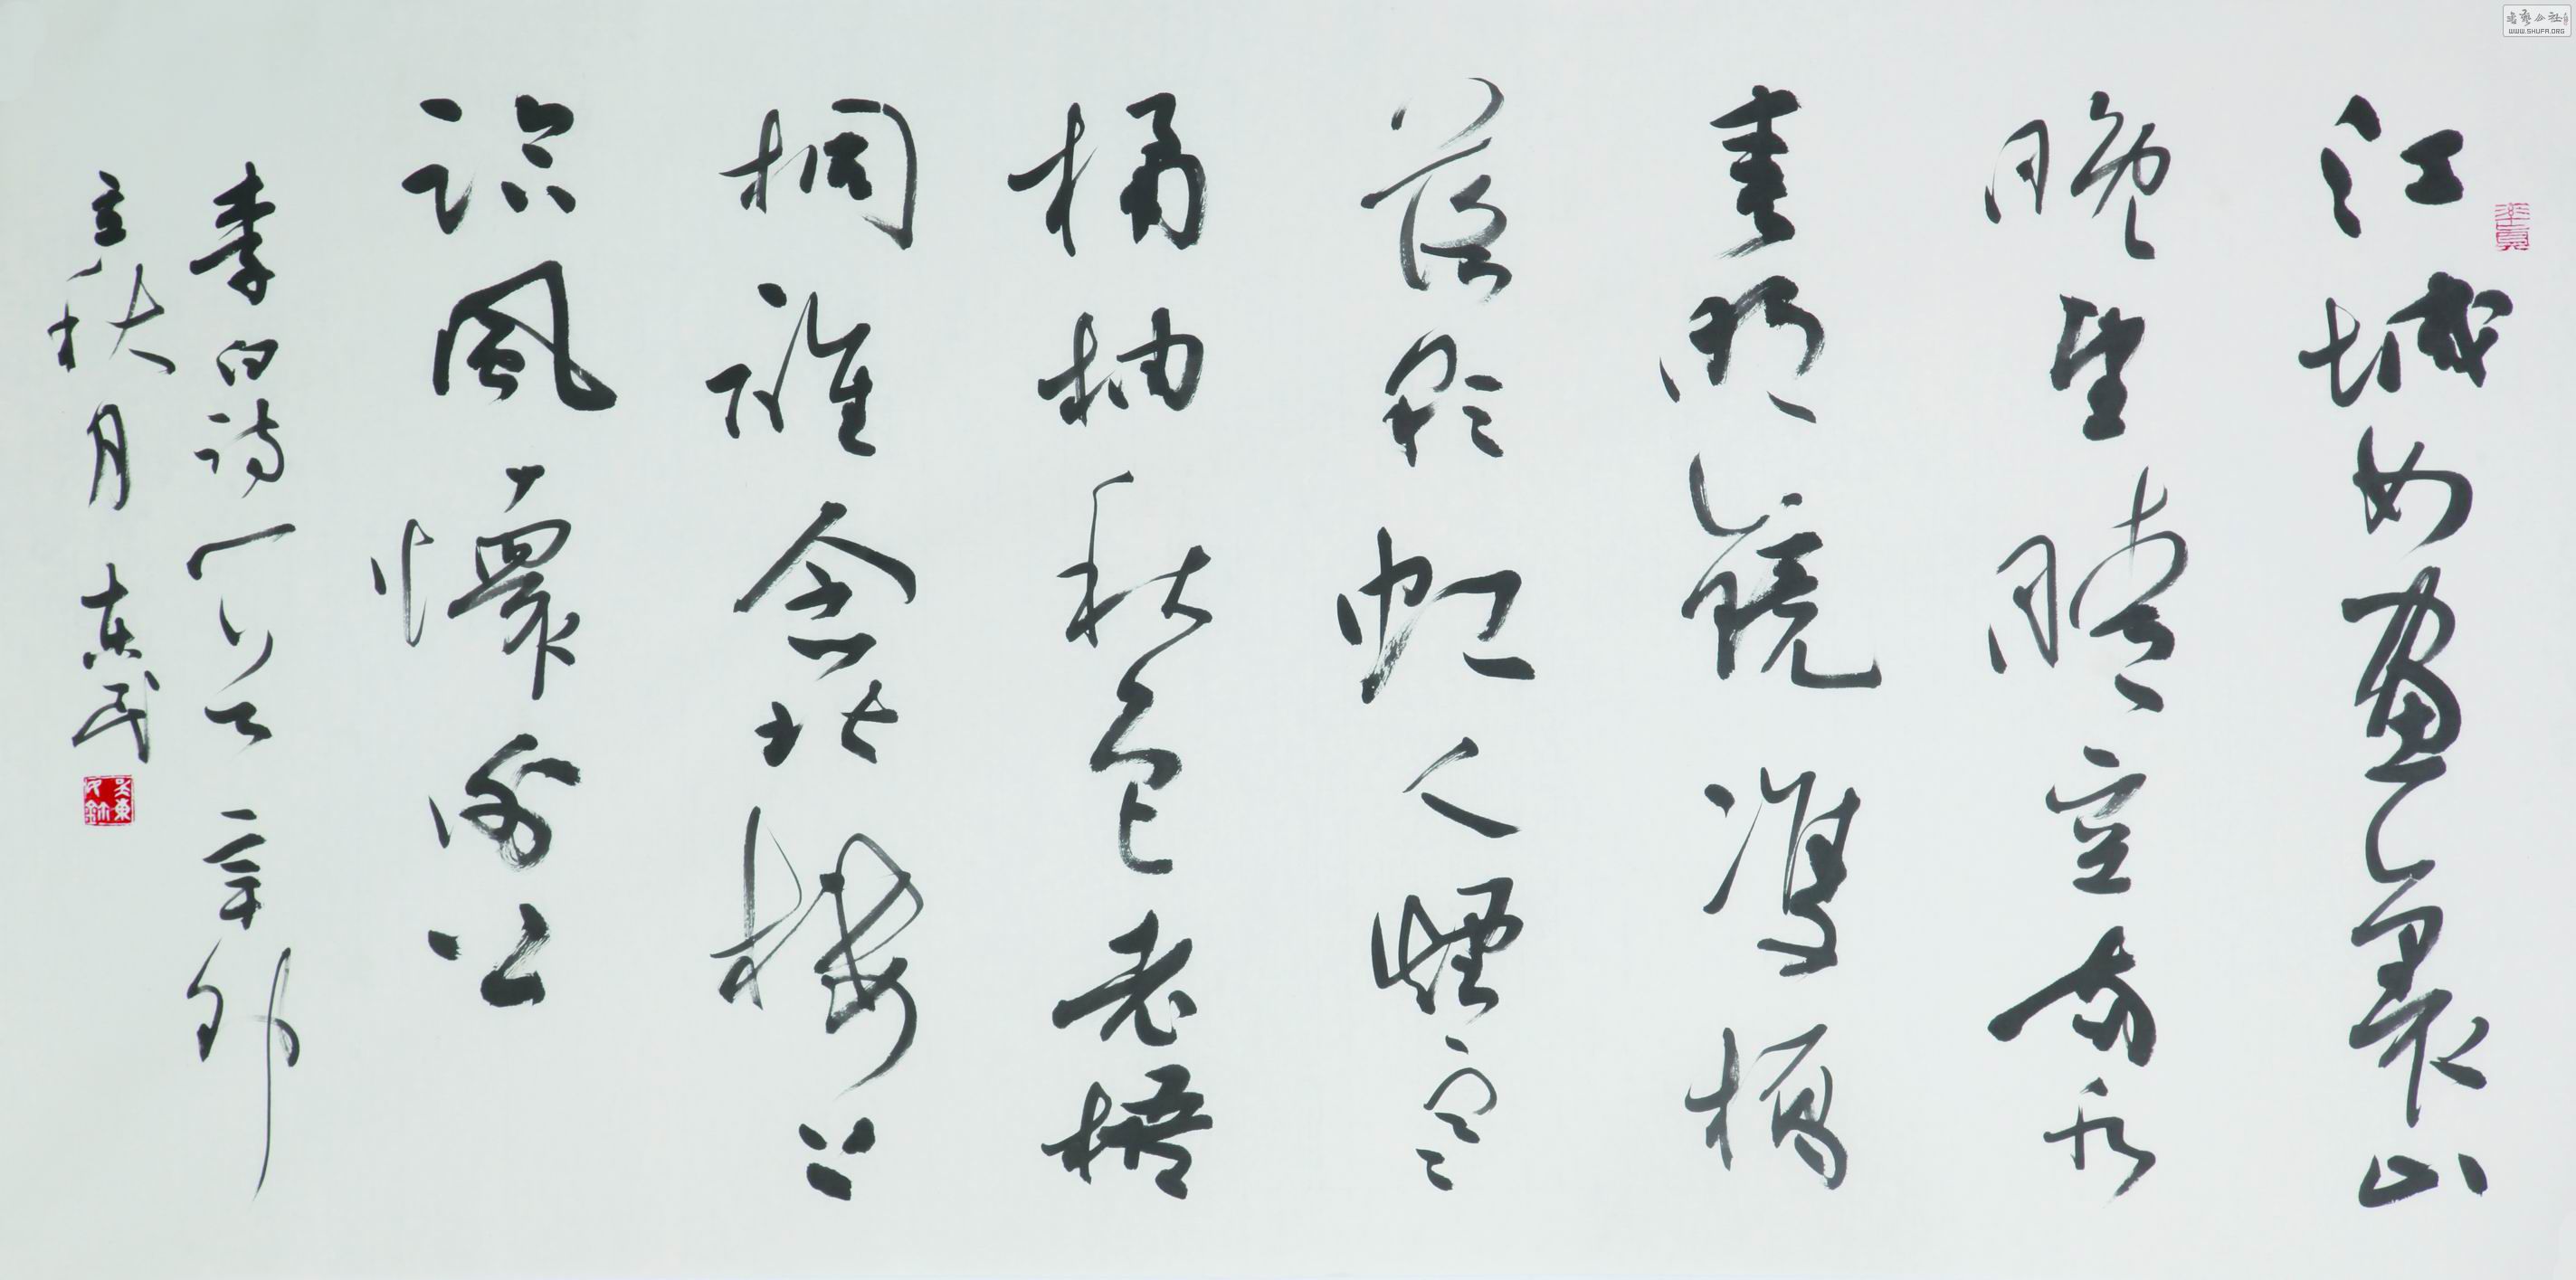 江城如畫裏山
晚望晴空兩水
夾明鏡雙橋
落彩虹人煙寒
橘柚秋色老梧
桐誰念北樓上
臨風懷謝公
李白詩一首 辛卯
立秋月 東民
WWW.SHUFA.ORG